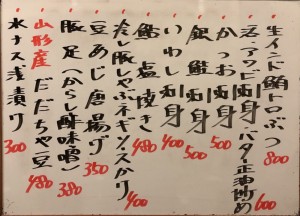 生インド鮪トロぶつ 800
活アワビ刺身 バター正油炒め 600
かつお刺身 500
銀鮭刺身 500
いわし刺身 400
鮎塩焼き 480
冷し豚しゃぶネギソースかけ 400
豆あじ唐揚げ 350
豚足(からし酢味噌) 380
山形産だだちゃ豆 480
水ナス浅漬け 300